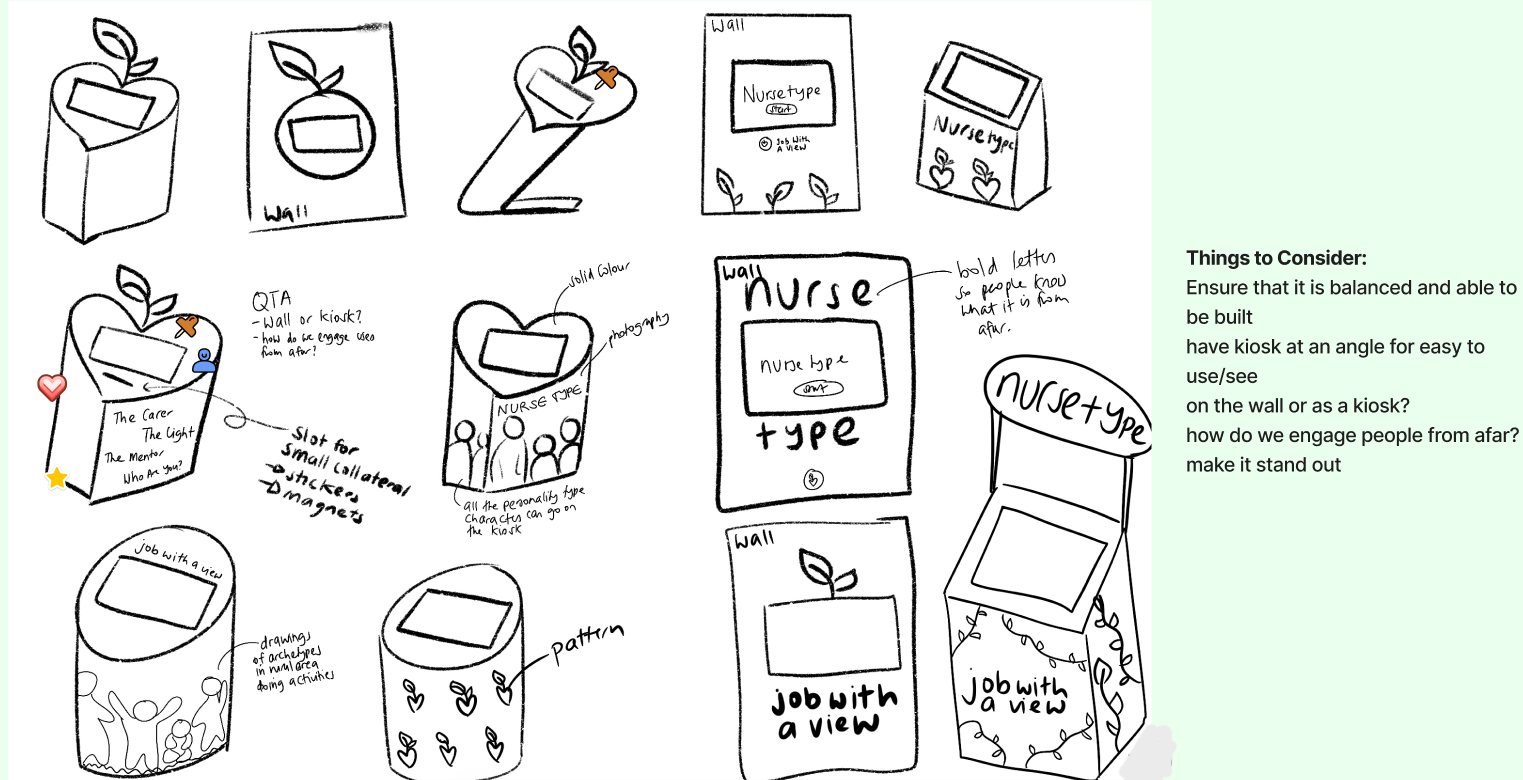 wall
wall
Nursetype
start
Job With
A View
Nursetype
QTA
- Wall or kiosk?
- how do we engage users
from afar?
The Carer
The Light
The Mentor
Who Are You?
Slot for
small collateral
→ stickers
→ magnets
solid colour
photography
NURSE TYPE
all the personality type
character can go on
the kiosk
wall
nurse
nursetype
start
type
bold letters
so people know
what it is from
afar.
nursetype
job with a view
drawings
of archetypes
in rural area
doing activities
pattern
wall
job with
a view
job with
a view
Things to Consider:
Ensure that it is balanced and able to
be built
have kiosk at an angle for easy to
use/see
on the wall or as a kiosk?
how do we engage people from afar?
make it stand out